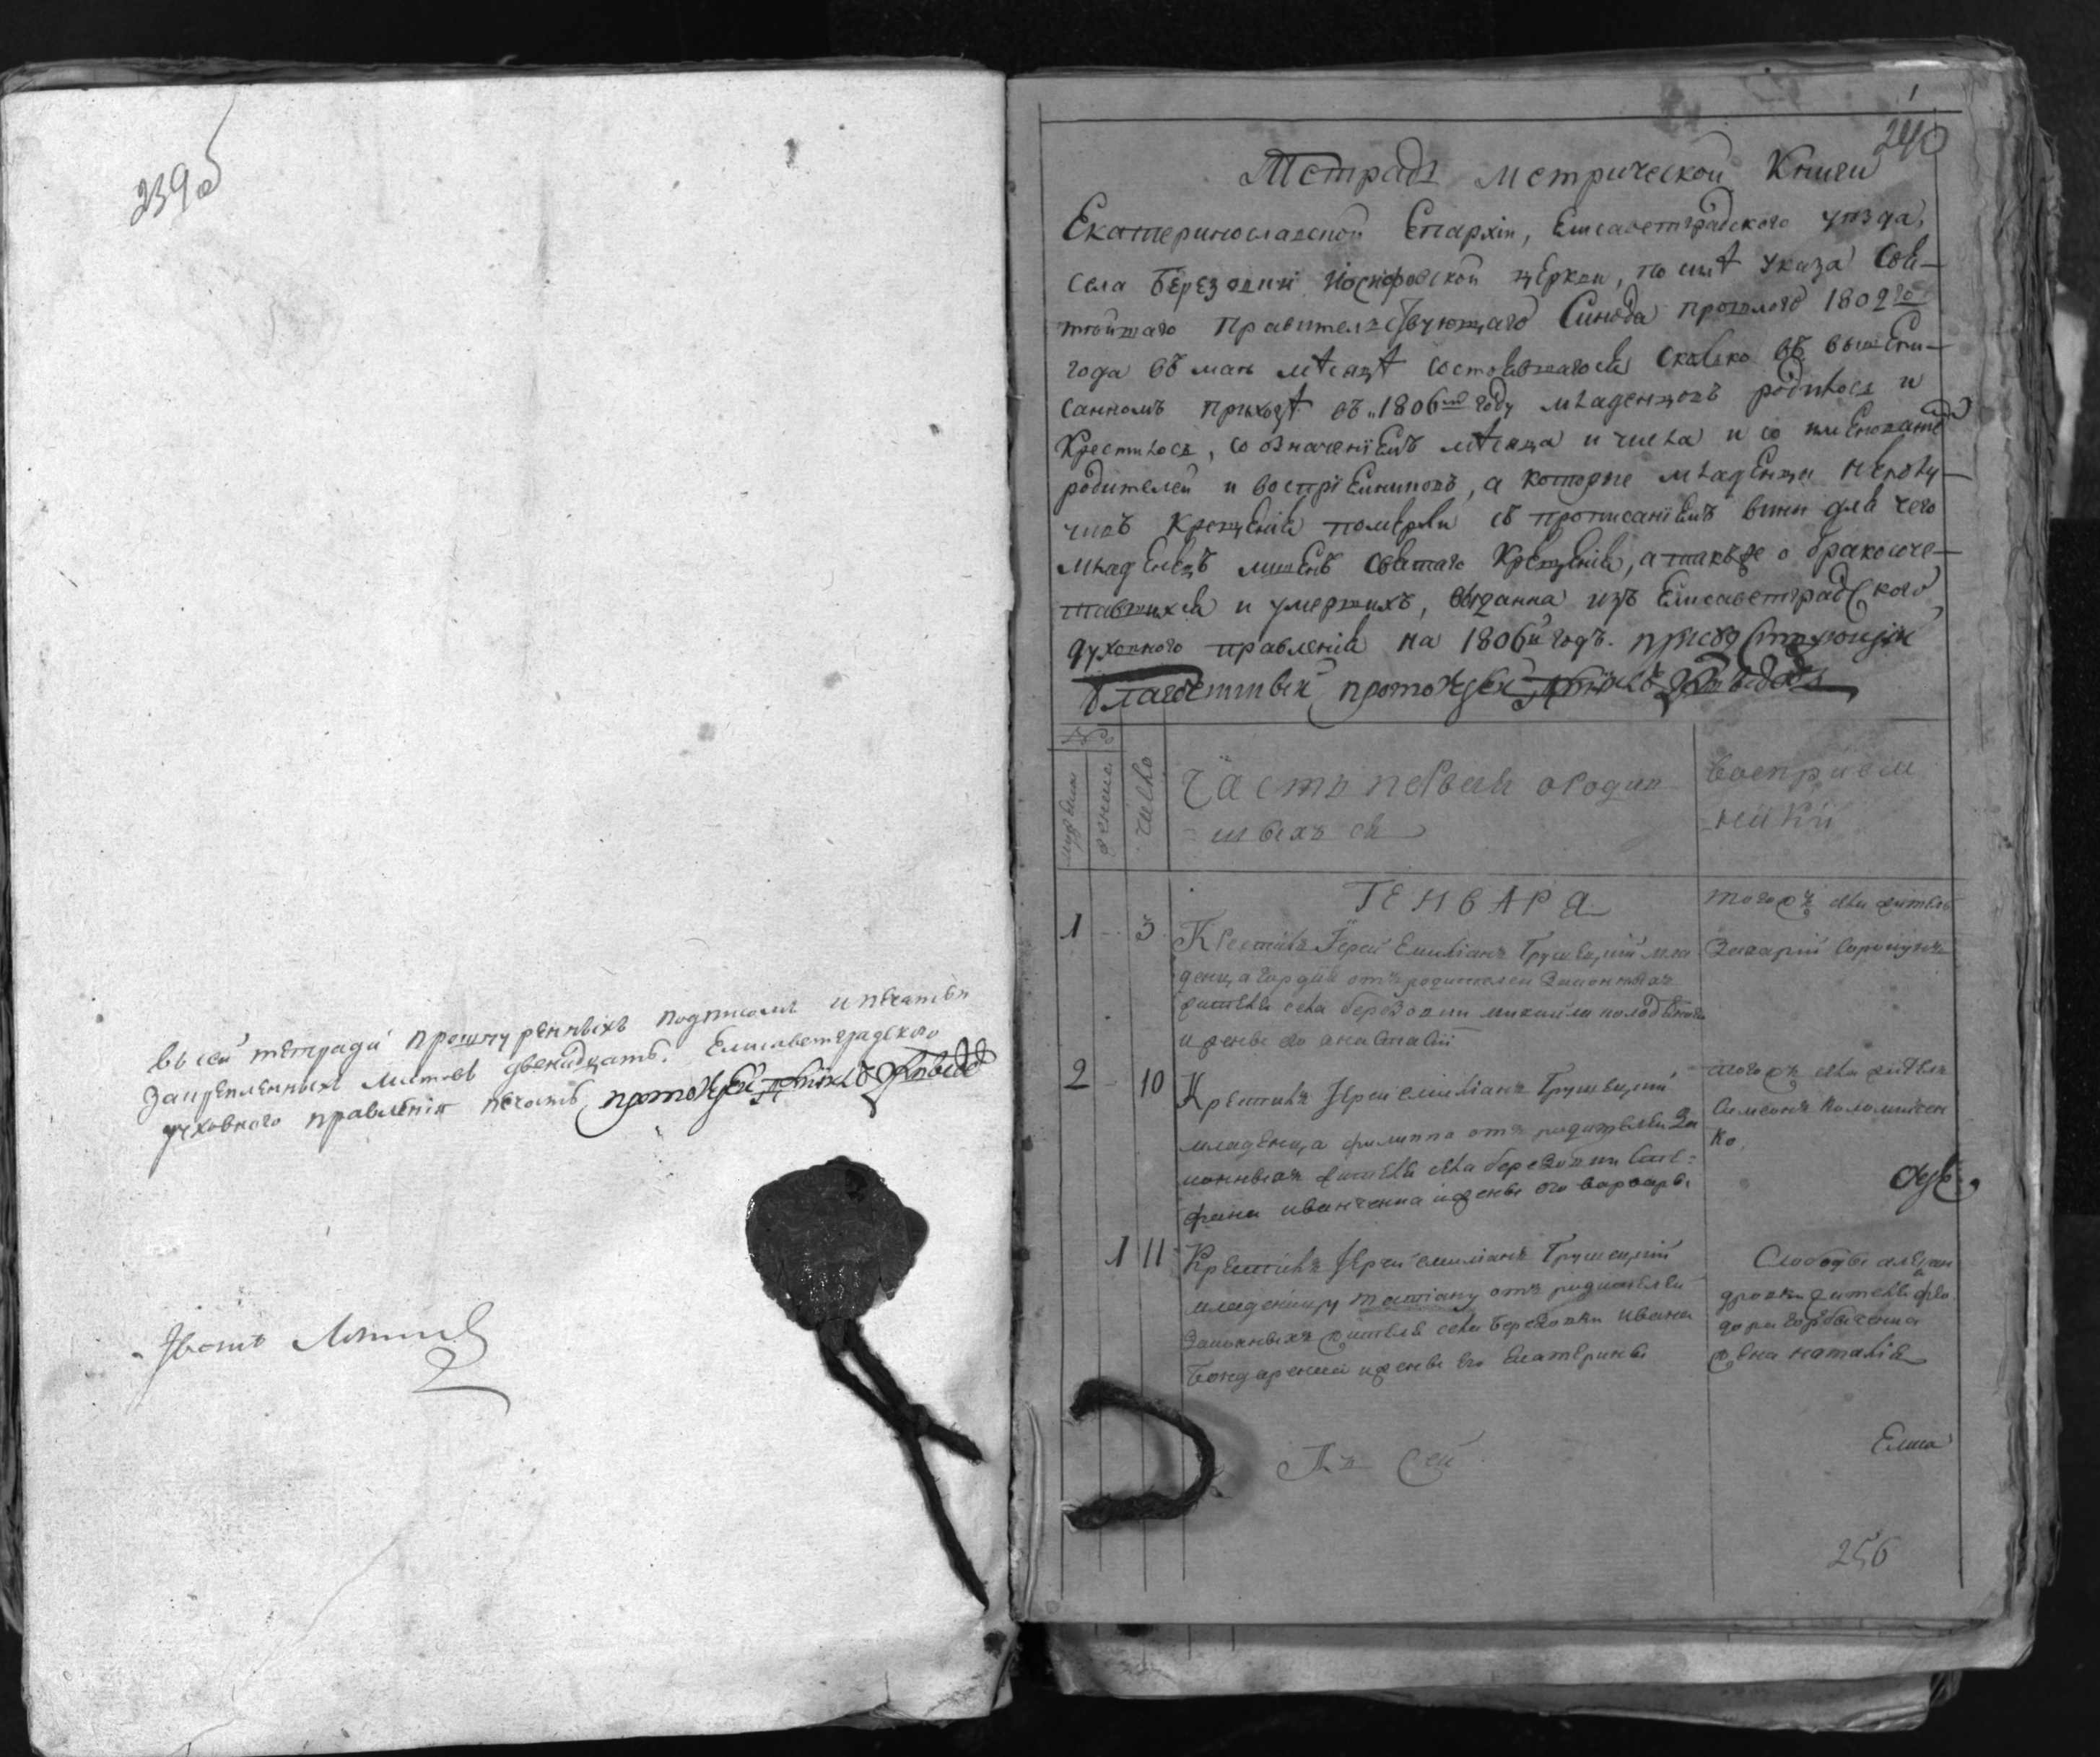 239 об
въ сей тетради прошнуренныхъ подписомъ и печатью
закрепленныхъ листовъ двенадцать. Елисаветградского
духовного правления печать, протоїерей
1
240
Тетрадь метрической Книги
Екатеринославской Епархіи, Елисаветградского уѣзда,
села Березовки Иосифовской церкви, по силѣ указа Свя-
тѣйшаго Правительствующаго Синода прошлого 1802го
года въ маи мѣсяцѣ состоявшагося сколько въ вышепи-
санномъ приходѣ въ 1806мъ году младенцовъ родилось и
Крестилось, со означеніемъ мѣсяца и числа и со имянование
родителей и воспріемниковъ, а которые младенцы неполу-
чивъ Крещенія померли съ прописаніемъ вины для чего
младенецъ лишенъ святаго Крещенія, а такъже о бракосоче-
тавшихся и умершихъ, выданна изъ Елисаветградского
духовного правленія на 1806й годъ. присудствующій
благочинный протоїерей
№
мужеска
женска
число
Часть первая о родив
=шыхъ ся
восприем
=ники
ГЕНВАРА
1 - 5 Крестилъ Іерей Емиліанъ Грушецкий мла
денца Гордія отъ родителей Законныхъ
жителя села березовки михайла
и жены его анастасіи
тогожъ села житель
Захарий
2 - 10 Крестилъ Іерей емиліанъ Грушецкий
младенца филиппа отъ родителей За
конныхъ жителя села березовки Сте=
фана иванченка и жены его варвары
тогожъ села житель
Симеонъ Коломийчен
ко,
1 11 Крестилъ Іерей емилианъ Грушецкий
младеницу татіану отъ родителей
Законныхъ жителя села березовки ивана
Бондаренка и жены его екатерины
Слободы алексан
дровки жителя фео
дора
жена наталія
Елиса
Къ сей
256